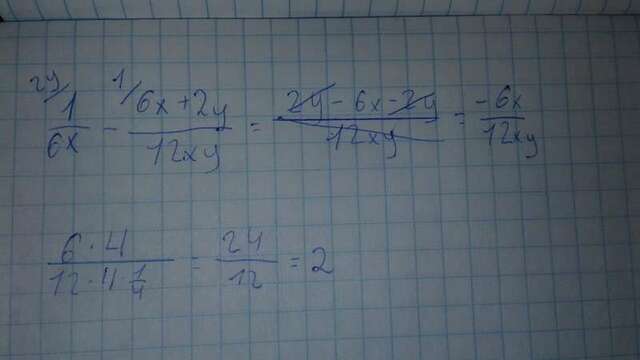 2y/ 1/6x - 1/ (6x+2y)/12xy = (2y-6x-2y)/12xy = -6x/12xy
6·4/12·4·1/4 = 24/12 = 2